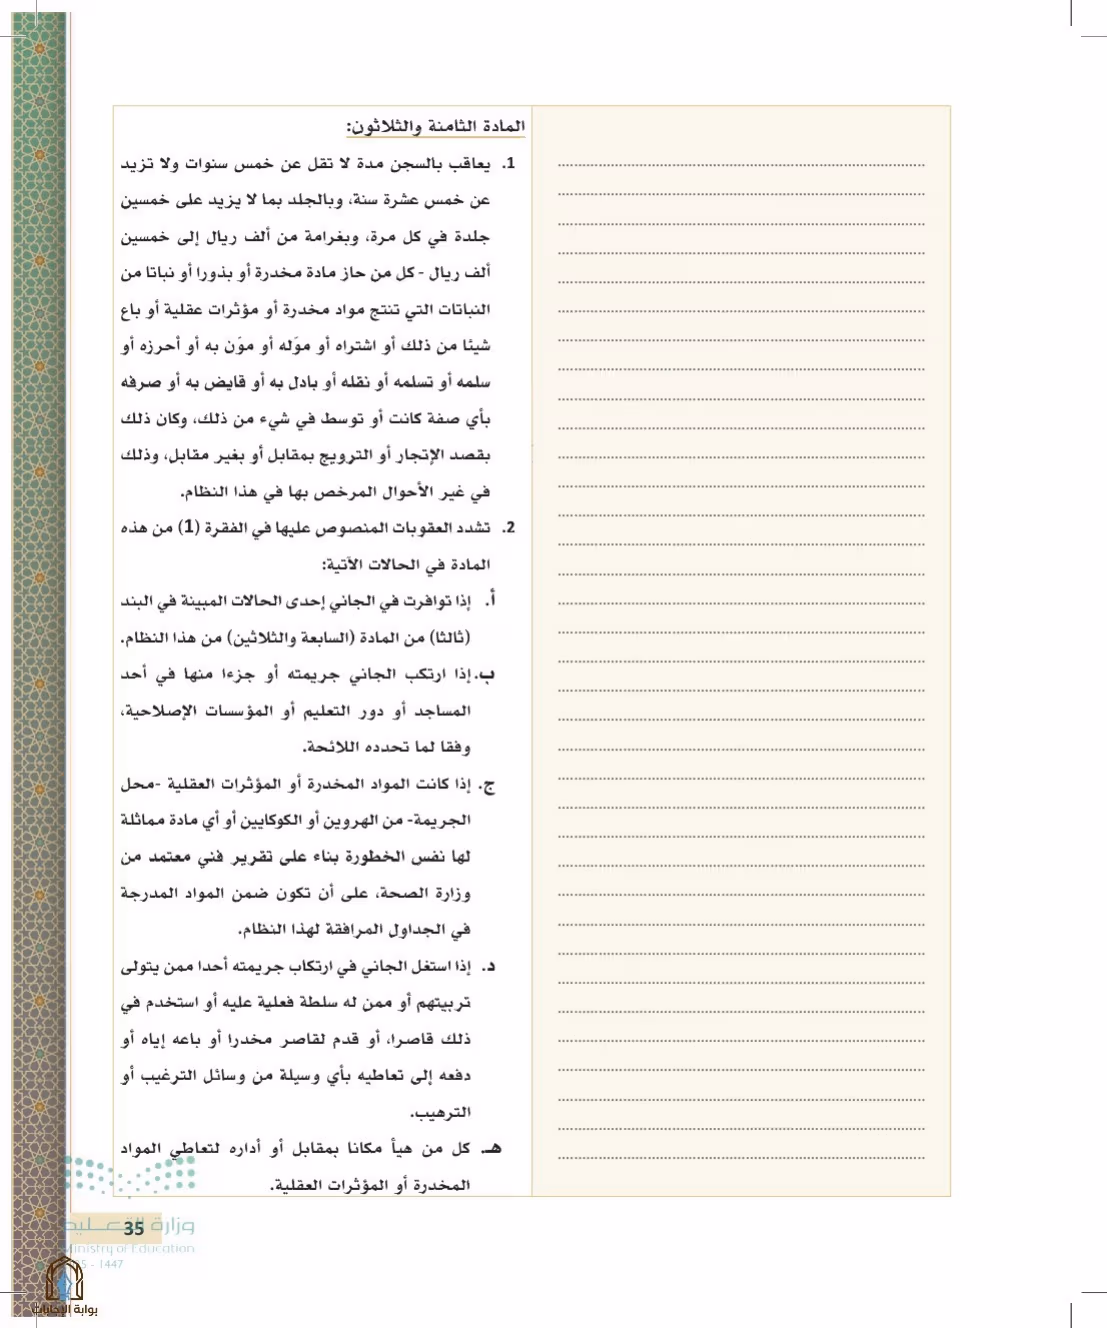 المادة الثامنة والثلاثون:
1. يعاقب بالسجن مدة لا تقل عن خمس سنوات ولا تزيد
عن خمس عشرة سنة، وبالجلد بما لا يزيد على خمسين
جلدة في كل مرة، وبغرامة من ألف ريال إلى خمسين
ألف ريال - كل من حاز مادة مخدرة أو بذورا أو نباتا من
النباتات التي تنتج مواد مخدرة أو مؤثرات عقلية أو باع
شيئا من ذلك أو اشتراه أو موّله أو موّن به أو أحرزه أو
سلمه أو تسلمه أو نقله أو بادل به أو قايض به أو صرفه
بأي صفة كانت أو توسط في شيء من ذلك، وكان ذلك
بقصد الإتجار أو الترويج بمقابل أو بغير مقابل، وذلك
في غير الأحوال المرخص بها في هذا النظام.
2. تشدد العقوبات المنصوص عليها في الفقرة (1) من هذه
المادة في الحالات الآتية:
أ. إذا توافرت في الجاني إحدى الحالات المبينة في البند
(ثالثا) من المادة (السابعة والثلاثين) من هذا النظام.
ب. إذا ارتكب الجاني جريمته أو جزءا منها في أحد
المساجد أو دور التعليم أو المؤسسات الإصلاحية،
وفقا لما تحدده اللائحة.
ج. إذا كانت المواد المخدرة أو المؤثرات العقلية -محل
الجريمة- من الهروين أو الكوكايين أو أي مادة مماثلة
لها نفس الخطورة بناء على تقرير فني معتمد من
وزارة الصحة، على أن تكون ضمن المواد المدرجة
في الجداول المرافقة لهذا النظام.
د. إذا استغل الجاني في ارتكاب جريمته أحدا ممن يتولى
تربيتهم أو ممن له سلطة فعلية عليه أو استخدم في
ذلك قاصرا، أو قدم لقاصر مخدرا أو باعه إياه أو
دفعه إلى تعاطيه بأي وسيلة من وسائل الترغيب أو
الترهيب.
هـ. كل من هيأ مكانا بمقابل أو أداره لتعاطي المواد
المخدرة أو المؤثرات العقلية.
وزارة التعليم
35
Ministry of Education
5 - 1447
بوابة الإجابات